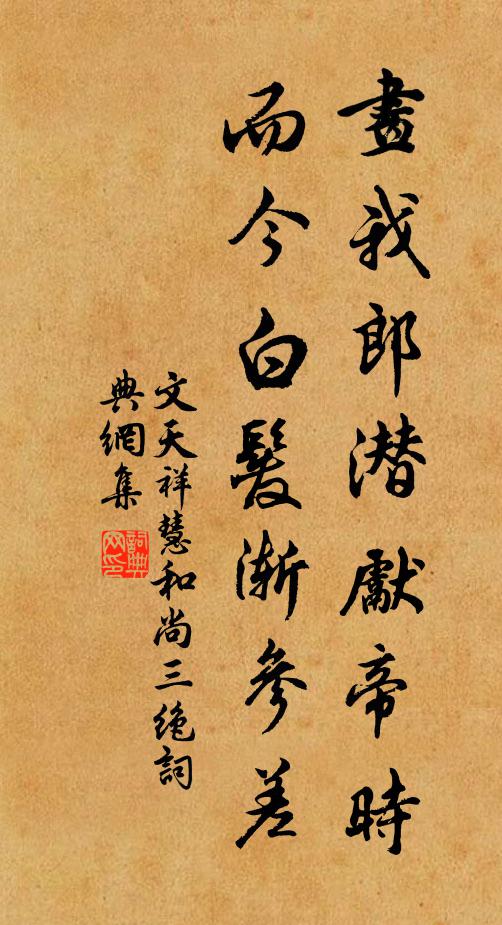 畫我郎潜獻帝時
而今白髮漸參差
文天祥慧和尚三絶詞
典網集
詞典網印